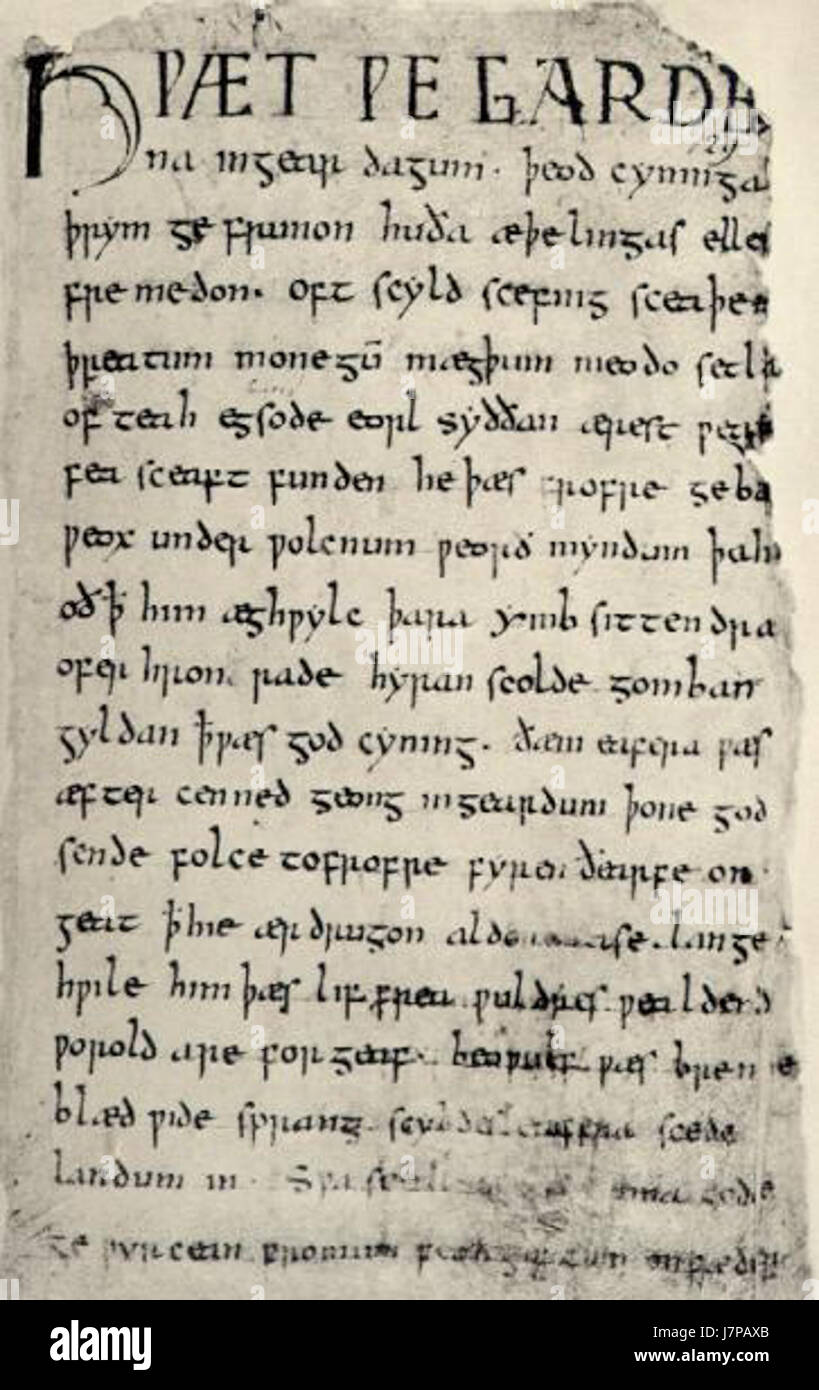 HǷÆT ǷE GARDE
na ingear dagum. þeod cyninga
þrym ge frunon huða æþelingas elle
fremedon. oft scyld scefing sceaþe
þreatum monegū mægþum meodo setla
of teah egsode eorl syððan ærest ƿear
fea sceaft funden he þæs frofre geba
ƿeox under ƿolcnum ƿeorð myndum þah
oðꝥ him æghƿylc þara ymb sittendra
ofer hron rade hyran scolde gomban
gyldan ꝥƿæs god cyning. ðæm eafera ƿæs
æfter cenned geong ingeardum þone god
sende folce tofrofre fyren ðearfe on
geat ꝥhie ær drugon aldor ase. lange
hƿile him þæs liffrea ƿuldres ƿealdend
ƿorold are forgeaf. beoƿulf ƿæs breme
blæd ƿide sprang scyldes eafera scede
landum in. Sƿa sceal ma gode
ge ƿyrcean fromum feoh giftum
alamy
Image ID: J7PAXB
www.alamy.com